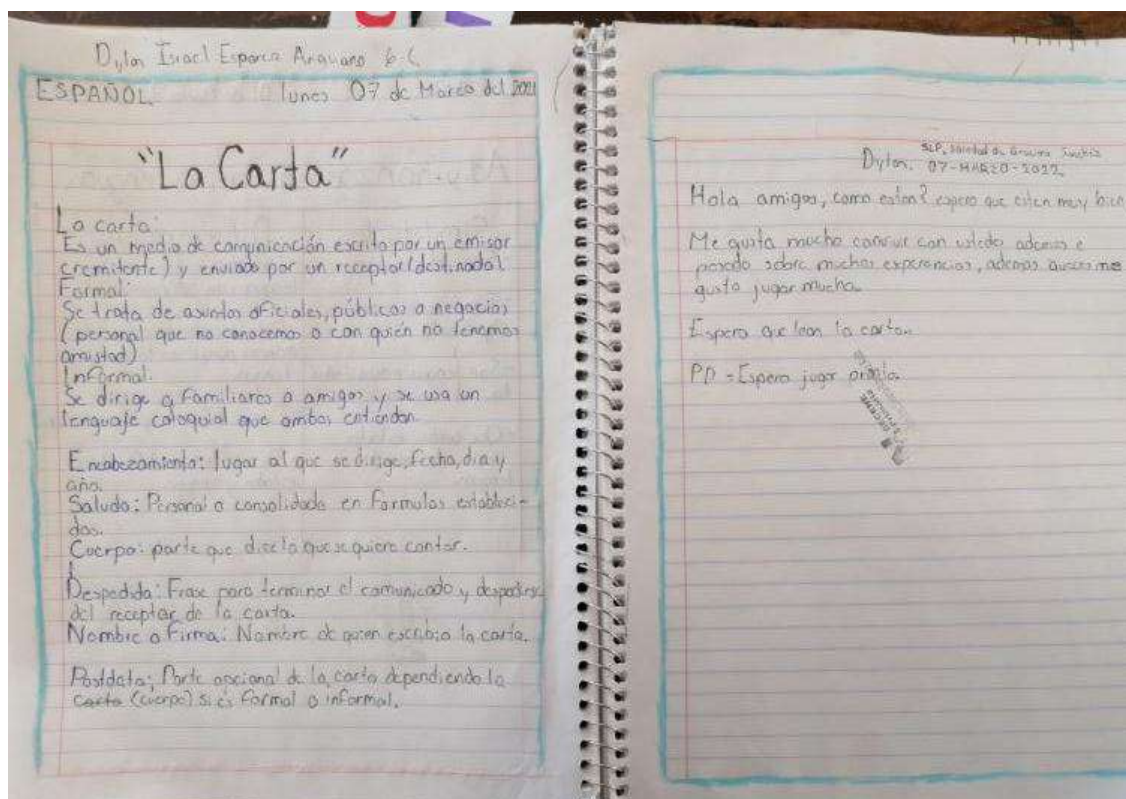 Dylan Israel Esparza Anguano 6-C
ESPAÑOL. lunes 07 de Marzo del 202
"La Carta"
La carta:
Es un medio de comunicación escrito por un emisor
(remitente) y enviado por un receptor (destinado).
Formal:
Se trata de asuntos oficiales, públicos o negocios
(personal que no conocemos o con quién no tenemos
amistad)
Informal:
Se dirige a familiares o amigos y se usa un
lenguaje coloquial que ambos entiendan.
Encabezamiento: lugar al que se dirige, fecha, dia y
año.
Saludo: Personal o consolidado en formulas estableci-
das.
Cuerpo: parte que dice lo que se quiere contar.
Despedida: Frase para terminar el comunicado y despedirse
del receptor de la carta.
Nombre o Firma: Nombre de quien escribio la carta.
Postdata: Parte opcional de la carta dependiendo la
carta (cuerpo) si es formal o informal.
SLP, Soledad de Graciano Sanchez
Dylan. 07-MARZO-2022.
Hola amigos, como estan? espero que esten muy bien
Me gusta mucho convivir con ustedes ademas e
pasado sobre muchas experencias, ademas me
gusta jugar mucho.
Espero que lean la carta.
PD = Espero jugar pronto.